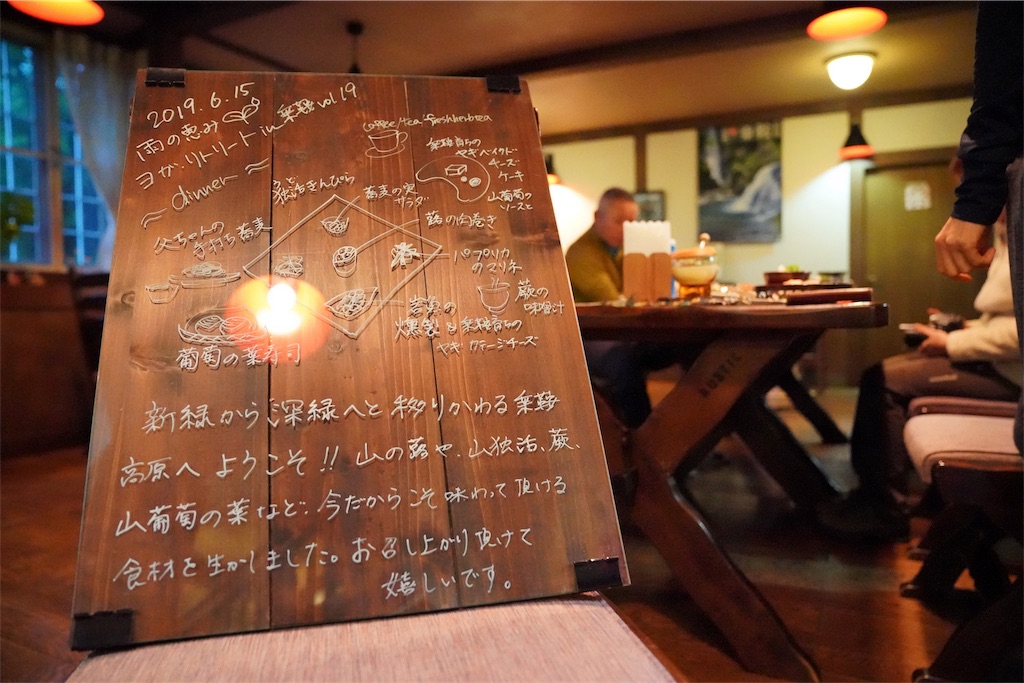 2019.6.15
雨の恵み
ヨガ・リトリート in 乗鞍 vol.19
~ dinner ~
coffee/tea・fresh herb tea
乗鞍育ちの
ヤギベイクド
チーズ
ケーキ
山葡萄の
ソースと
うど
独活きんぴら
蕎麦の実
サラダ
蕗の肉巻き
父ちゃんの
手打ち蕎麦
パプリカ
のマリネ
蕨の
味噌汁
岩魚の
燻製と乗鞍育ちの
ヤギカテージチーズ
葡萄の葉寿司
新緑から深緑へと移りかわる乗鞍
高原へようこそ!! 山の蕗や、山独活、蕨、
山葡萄の葉など、今だからこそ味わって頂ける
食材を生かしました。お召し上がり頂けて
嬉しいです。